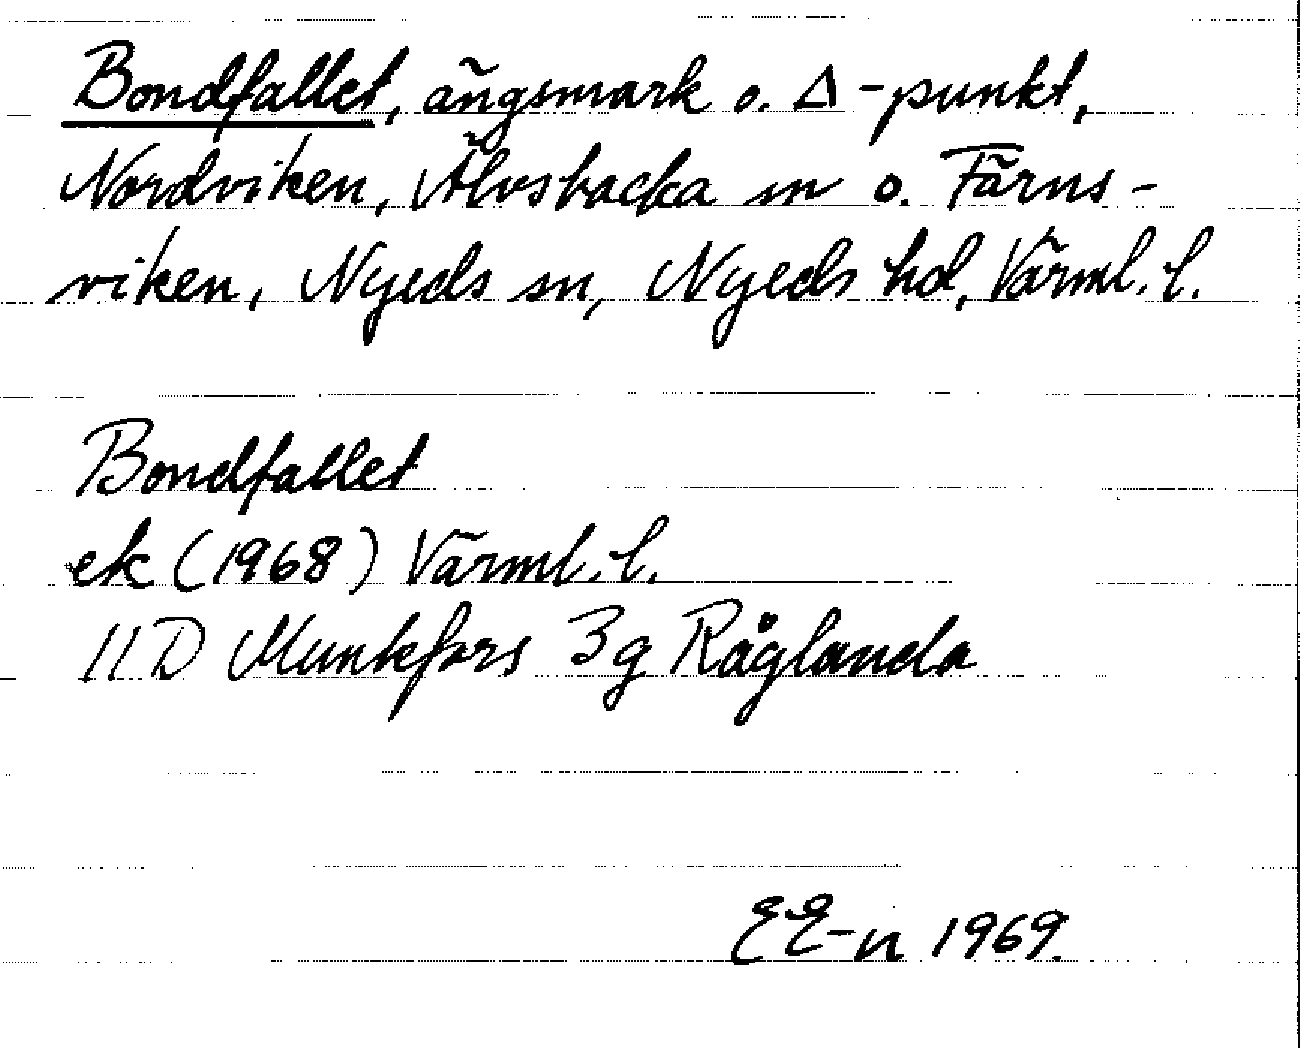 Bondfallet, ängsmark o. Δ-punkt,
Nordviken, Älvsbacka m o. Färns-
viken, Nyeds sn, Nyeds hd, Värml. l.
Bondfallet
ek (1968) Värml. l.
11D Munkfors 3g Råglanda
EE-n 1969.